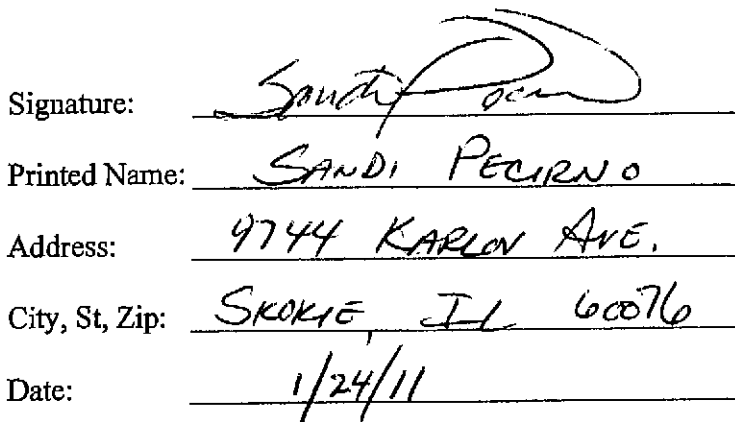 Signature: Sandi
Printed Name: SANDI PECIRNO
Address: 9744 KARLOV AVE.
City, St, Zip: SKOKIE, IL 60076
Date: 1/24/11